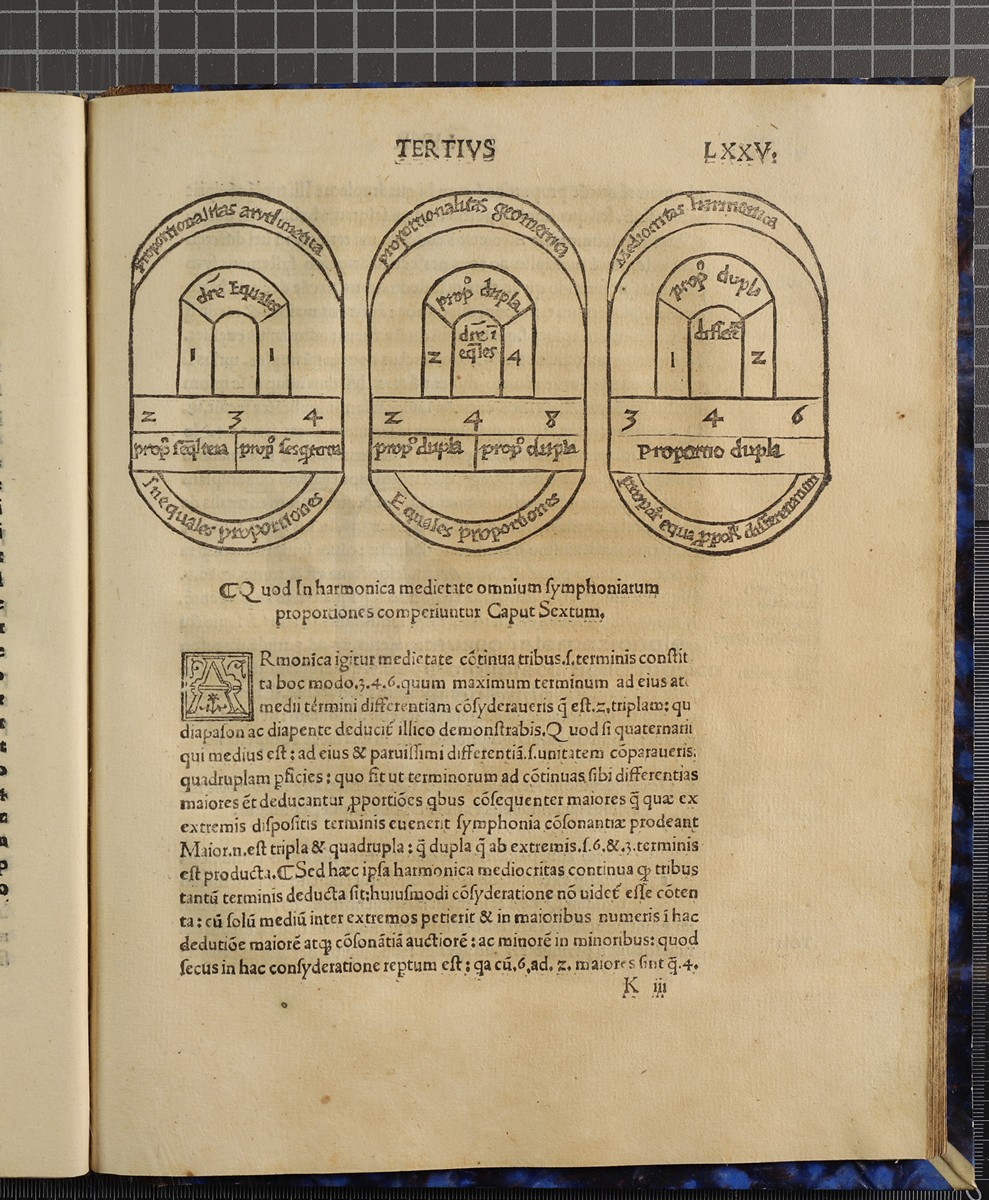 TERTIVS
LXXV.
Proportionalitas arythmetica
dr̄e Equales
1 1
2 3 4
propo seq̄ltera propo sesqtertia
Inequales proportiones
proportionalitas geometrica
propo dupla
dr̄e ī
eq̄les
2 4
2 4 8
propo dupla propo dupla
Equales proportiones
Mediocritas harmonica
propo dupla
differē
1 2
3 4 6
Proportio dupla
differentiarum
⁋Quod In harmonica medietate omnium ſymphoniarum
proportiones comperiuntur Caput Sextum.
ARmonica igitur medietate cōtinua tribus.ſ.terminis conſtit
ta hoc modo.3.4.6.quum maximum terminum ad eius at
medii términi differentiam cōſyderaueris q̄ eſt.2,triplam: qu
diapaſon ac diapente deducit̄ illico demonſtrabis.Quod ſi quaternarii
qui medius eſt: ad eius & paruiſſimi differentiā.ſ.unitatem cōparaueris:
quadruplam ꝑficies: quo fit ut terminorum ad cōtinuas ſibi differentias
maiores ēt deducantur ꝓportiōes qbus cōſequenter maiores q̄ quæ ex
extremis diſpoſitis terminis euenerit ſymphonia cōſonantiæ prodeant
Maior.n.eſt tripla & quadrupla: q̄ dupla q̄ ab extremis.ſ.6.&.3.terminis
eſt producta.⁋Sed hæc ipſa harmonica mediocritas continua ꝙ tribus
tantū terminis deducta ſit:huiuſmodi cōſyderatione nō uidet̄ eſſe cōten
ta: cū ſolū mediū inter extremos petierit & in maioribus numeris ī hac
dedutiōe maiorē atꝗ cōſonātiā auctiorē: ac minorē in minoribus: quod
ſecus in hac conſyderatione reptum eſt: qa cū.6.ad. 2. maiores ſint q̄.4.
K iii